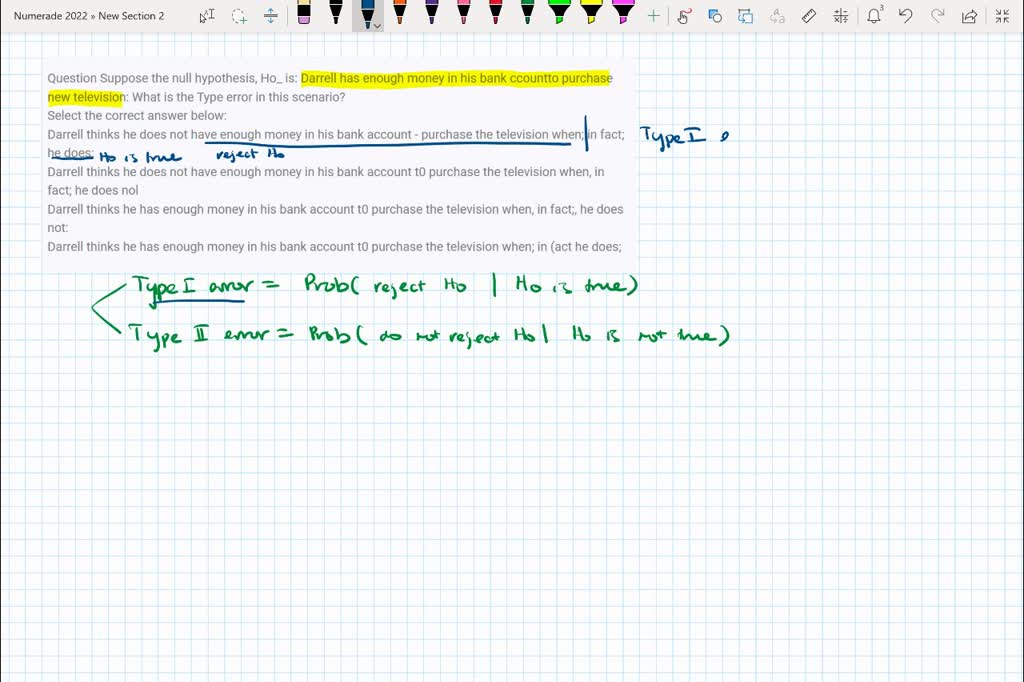 Numerade 2022 » New Section 2
3
Question Suppose the null hypothesis, Ho_ is: Darrell has enough money in his bank ccountto purchase
new television: What is the Type error in this scenario?
Select the correct answer below:
Darrell thinks he does not have enough money in his bank account - purchase the television when; in fact; Type I e
he does: Ho is true reject Ho
Darrell thinks he does not have enough money in his bank account t0 purchase the television when, in
fact; he does nol
Darrell thinks he has enough money in his bank account t0 purchase the television when, in fact;, he does
not:
Darrell thinks he has enough money in his bank account t0 purchase the television when; in (act he does;
Type I error = Prob( reject Ho | Ho is true)
Type II error = Prob( do not reject Ho | Ho is not true)